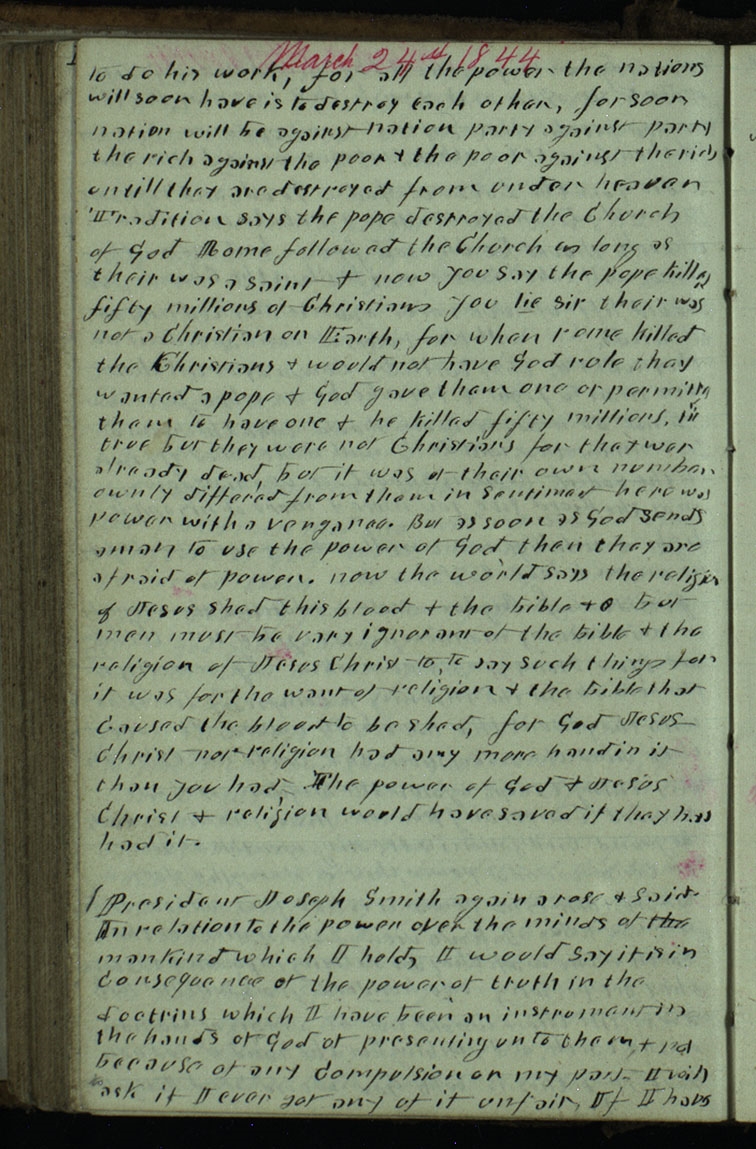 March 24th 1844
to do his work, for all the power the nations
will soon have is to destroy each other, for soon
nation will be against nation party against party
the rich against the poor & the poor against the rich
untill they are destroyed from under heaven
Tradition says the pope destroyed the Church
of God Rome followed the Church as long as
their was a saint & now you say the pope killed
fifty millions of Christians you lie sir their was
not a Christian on Earth, for when rome killed
the Christians & would not have God rule they
wanted a pope & God gave them one or permitted
them to have one & he killed fifty millions, tis
true but they were not Christians for they wer
already dead, but it was of their own number
ownly differed from them in Sentiment here was
power with a vengance. But as soon as God sends
a man to use the power of God then they are
afraid of power. now the world says the religion
of Jesus shed this blood & the bible & but
men must be vary ignorant of the bible & the
religion of Jesus Christ to, to say such things for
it was for the want of religion & the bible that
Caused the blood to be shed, for God Jesus
Christ nor religion had any more hand in it
than you had, The power of God & Jesus
Christ & religion would have saved if they had
had it.
President Joseph Smith again arose & said
In relation to the power over the minds of the
mankind which I hold, I would say it is in
Consequence of the power of truth in the
doctrins which I have been an instrument in
the hands of God of presenting unto them & not
because of any Compulsion on my part. I will
ask if I ever got any of it unfair, If I have